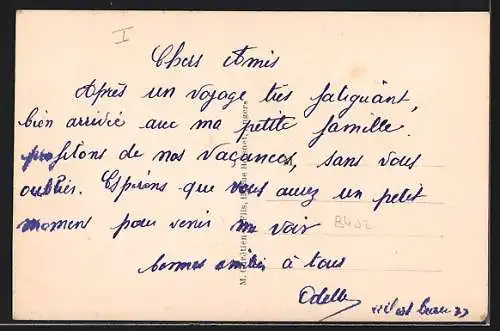 I
Chers Amis
Après un voyage très fatiguant,
bien arrivée avec ma petite famille.
profitons de nos vacances, sans vous
oublier. Espérons que vous aurez un petit
moment pour venir me voir
bonnes amitiés à tous
Odette
M. Chrétien Fils,